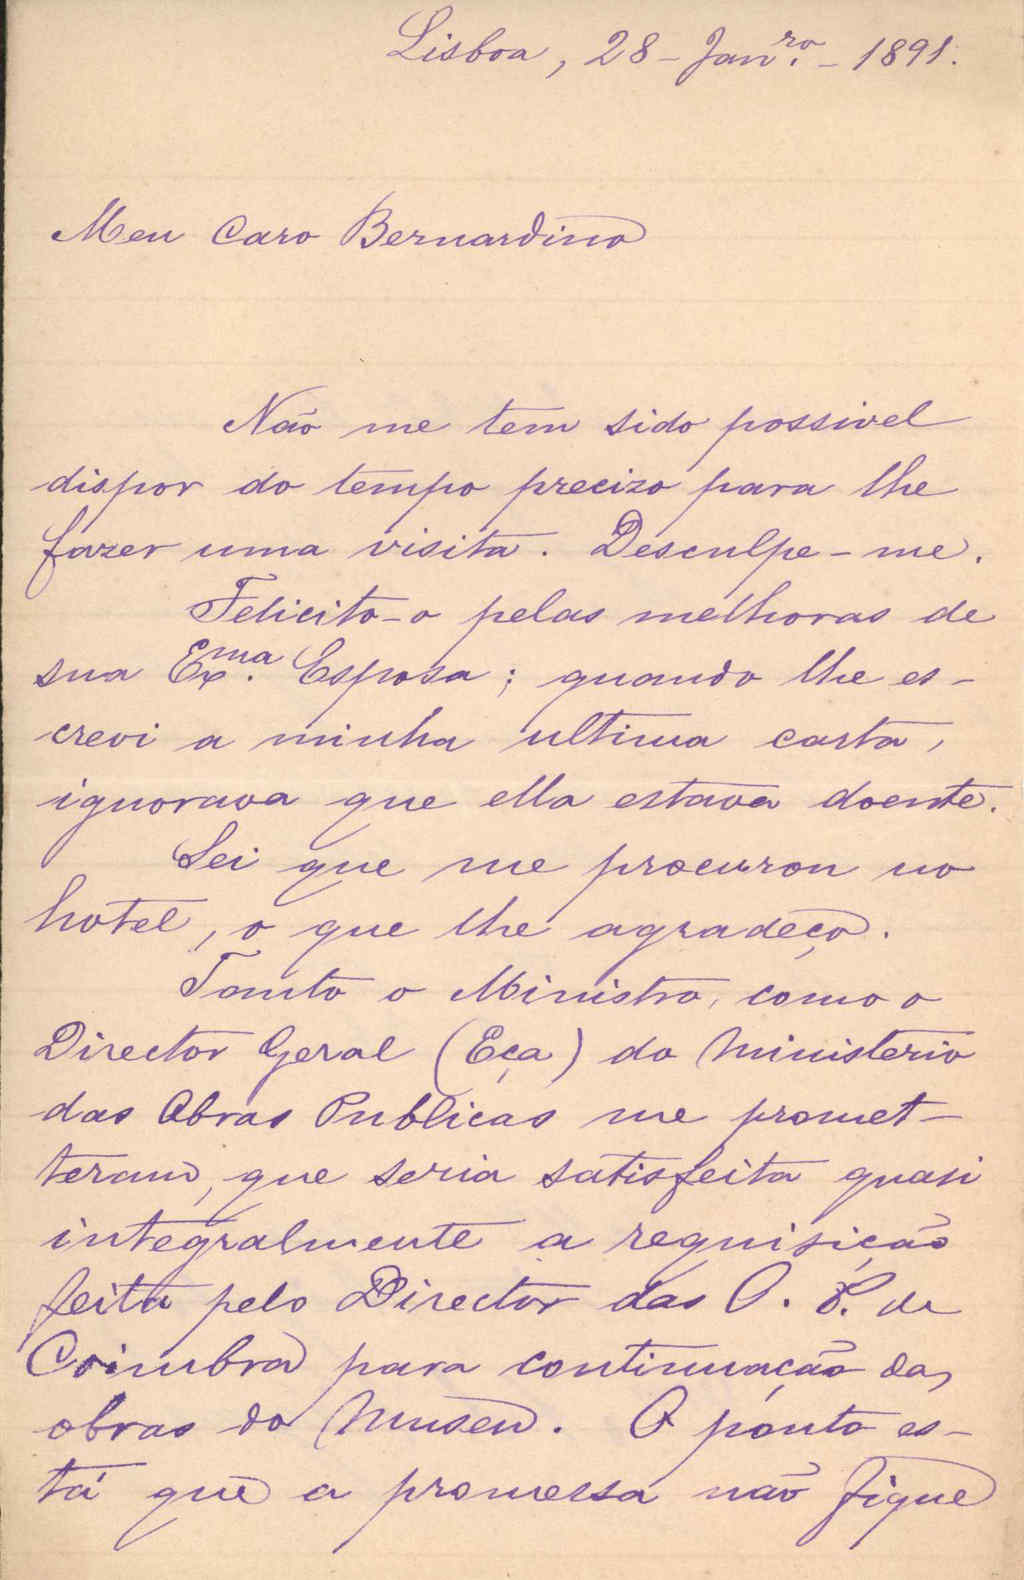 Lisboa, 28 - Jan.ro - 1891.
Meu Caro Bernardino
Não me tem sido possivel
dispor do tempo precizo para lhe
fazer uma visita. Desculpe-me.
Felicito-o pelas melhoras de
sua Ex.ma Esposa; quando lhe es-
crevi a minha ultima carta,
ignorava que ella estava doente.
Sei que me procurou no
hotel, o que lhe agradeço.
Tanto o Ministro, como o
Director Geral (Eça) do Ministerio
das Obras Publicas me promet-
teram, que seria satisfeita quasi
integralmente a requisição
feita pelo Director das O. P. de
Coimbra para continuação das
obras do Museu. O ponto es-
tá que a promessa não fique